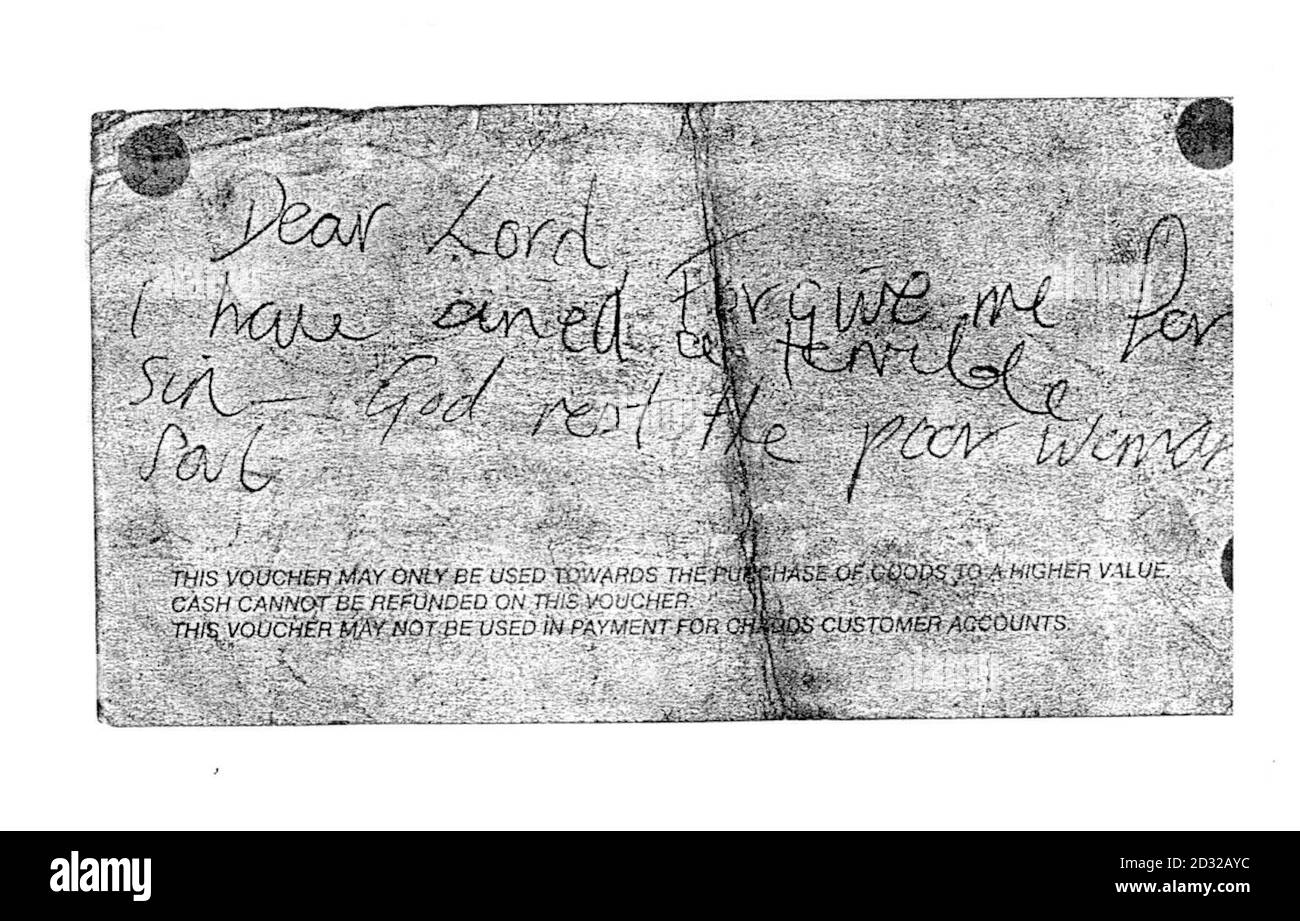 Dear Lord Forgive me for
I have sined a terrible
sin - God rest the poor woman
soul
THIS VOUCHER MAY ONLY BE USED TOWARDS THE PURCHASE OF GOODS TO A HIGHER VALUE.
CASH CANNOT BE REFUNDED ON THIS VOUCHER.
THIS VOUCHER MAY NOT BE USED IN PAYMENT FOR CHADDS CUSTOMER ACCOUNTS.
alamy
Image ID: 2D32AYC
www.alamy.com